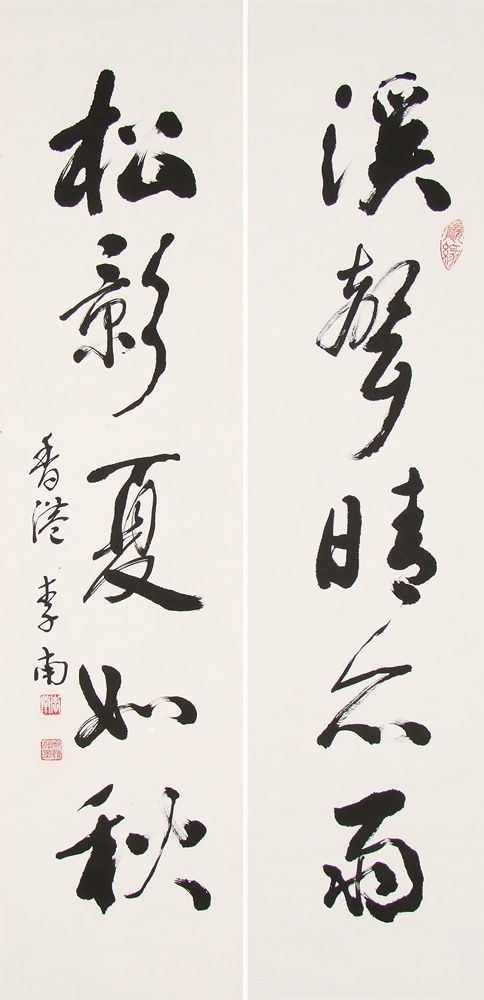 溪聲晴亦雨
松影夏如秋
香港 李南